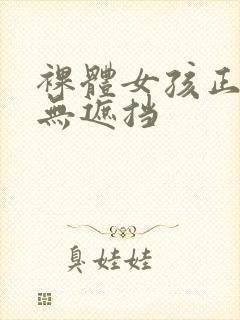 裸體女孩正
無遮挡
臭娃娃